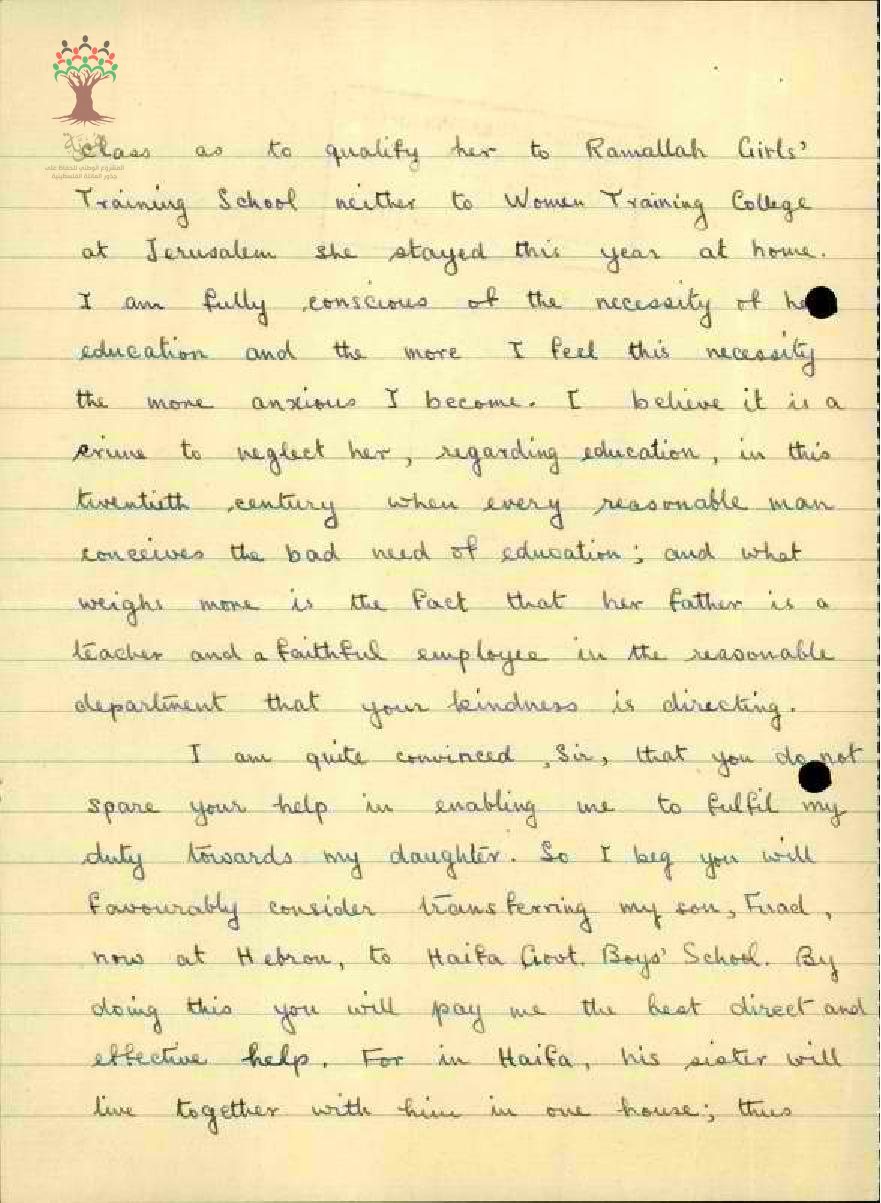 المشروع الوطني للحفاظ على
جذور العائلة الفلسطينية
class as to qualify her to Ramallah Girls'
Training School neither to Women Training College
at Jerusalem she stayed this year at home.
I am fully conscious of the necessity of
education and the more I feel this necessity
the more anxious I become. I believe it is a
crime to neglect her, regarding education, in this
twentieth century when every reasonable man
conceives the bad need of education; and what
weighs more is the fact that her father is a
teacher and a faithful employee in the reasonable
department that your kindness is directing.
I am quite convinced, Sir, that you do not
spare your help in enabling me to fulfil my
duty towards my daughter. So I beg you will
favourably consider transferring my son, Fuad,
now at Hebron, to Haifa Govt. Boys' School. By
doing this you will pay me the best direct and
effective help. For in Haifa, his sister will
live together with him in one house; thus